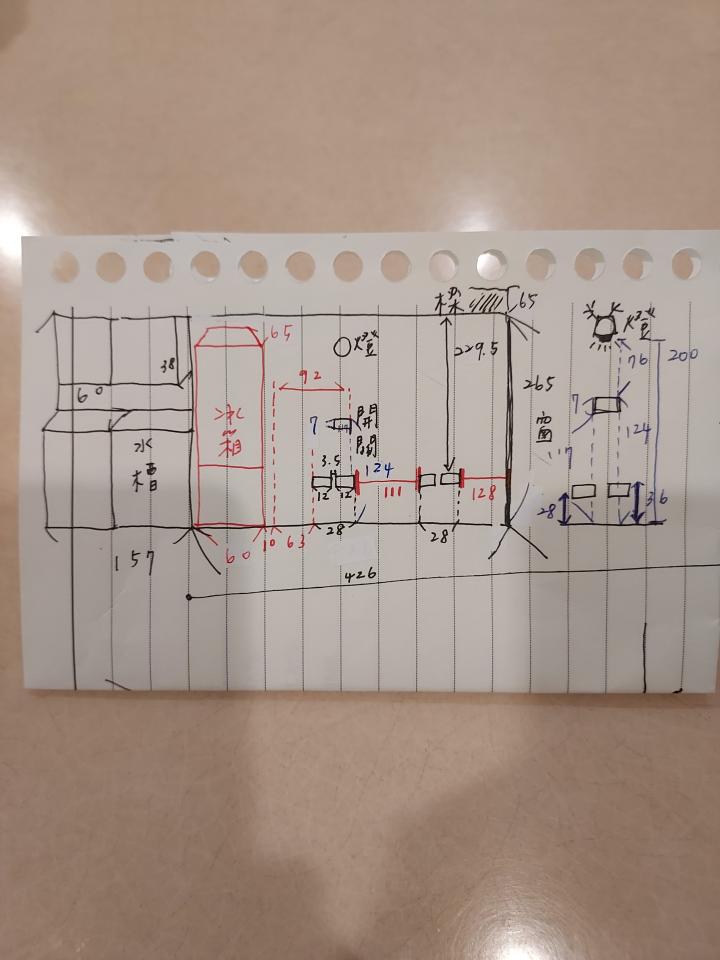 樑
65
65
燈
229.5
燈
200
38
92
76
265
60
7
開
關
7
窗
124
水
槽
冰
箱
3.5
124
12
12
111
128
28
36
157
60
10
63
28
28
426